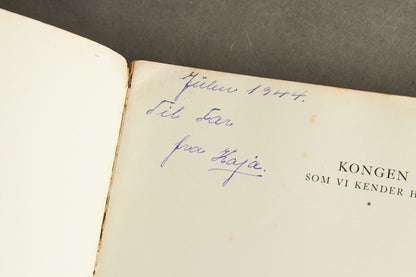 Julen 1944.
Til Far
fra Kaja.
KONGEN
SOM VI KENDER H